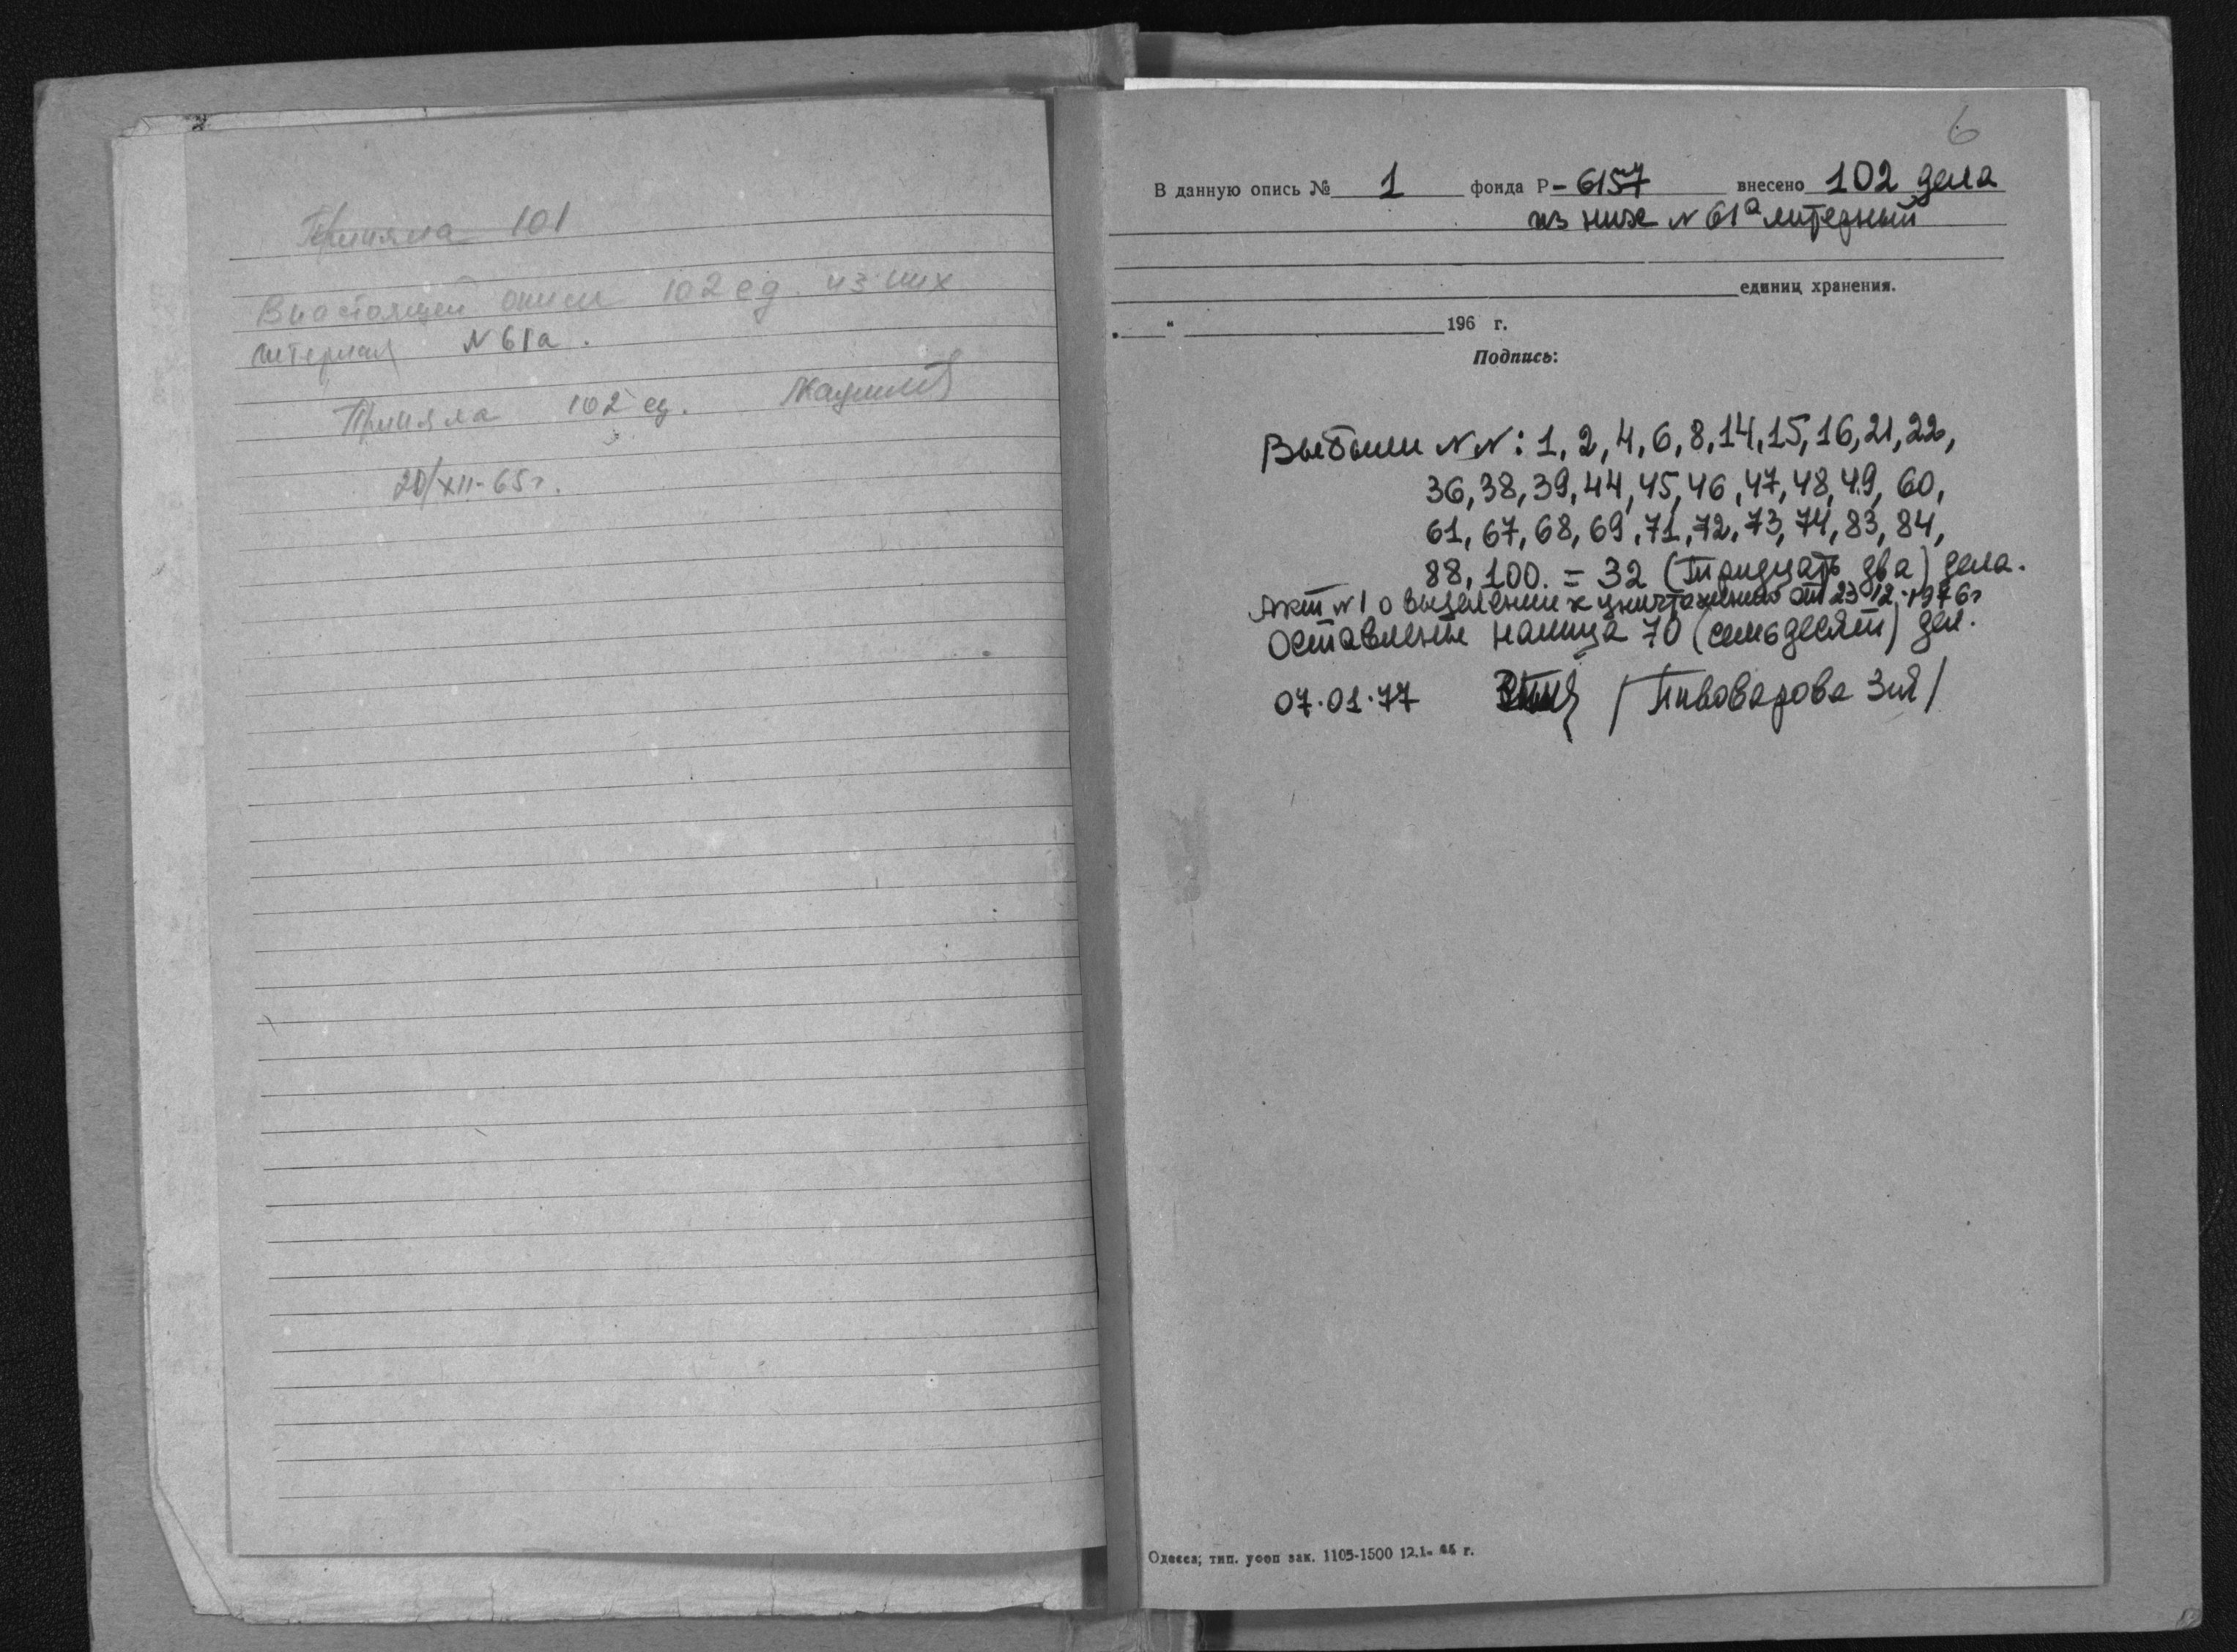 Приняла 101
В настоящей описи 102 ед. из них
литерная N 61а.
Приняла 102 ед.
20/XII-65г.
6
В данную опись № 1 фонда Р-6157 внесено 102 дела
из них N 61а литерный
единиц хранения.
„ “ 196 г.
Подпись:
Выбыли NN: 1, 2, 4, 6, 8, 14, 15, 16, 21, 22,
36, 38, 39, 44, 45, 46, 47, 48, 49, 60,
61, 67, 68, 69, 71, 72, 73, 74, 83, 84,
88, 100. = 32 (тридцать два) дела.
Акт N 1 о выделении к уничтожению от 23.12.1976г
Оставленые налицо 70 (семьдесят) дел.
07.01.77 /Пивоварова ЗИ/
Одесса; тип. уооп зак. 1105-1500 12.1-